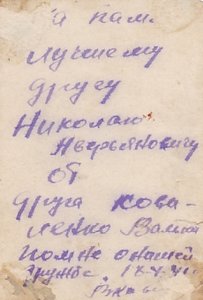 а пам.
лучшему
другу
Николаю
Аверьяновичу
от
друга Кова-
ленко Вали
Помни о нашей
дружбе.